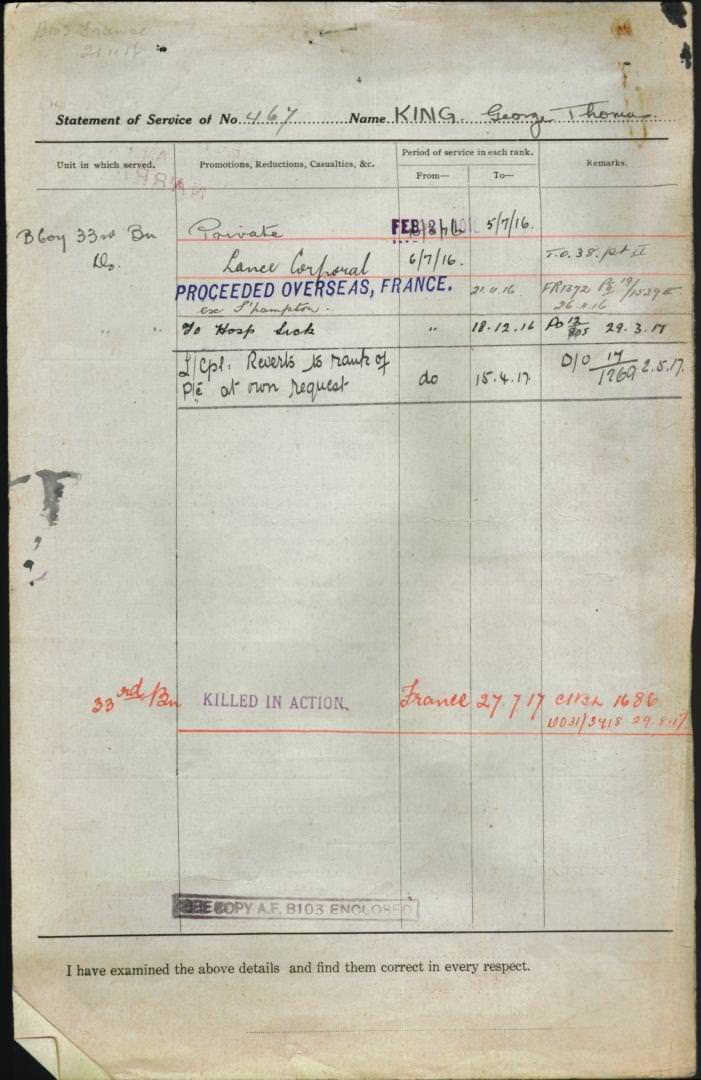 B103 France
21.11.16
4
Statement of Service of No. 467 Name KING. George Thomas
Unit in which served. Promotions, Reductions, Casualties, &c. Period of service in each rank. Remarks.
From— To—
B Coy 33rd Bn Private FEB 5/7/16.
Do. Lance Corporal 6/7/16. T.O. 38. pt II
PROCEEDED OVERSEAS, FRANCE. 21.11.16 FR1372
ex S'hampton. 26.11.16
" " To Hosp Sick " 18.12.16 29.3.17
L/Cpl: Reverts to rank of do 15.4.17. D/O 17/1769 2.5.17.
Pte at own request
33rd Bn KILLED IN ACTION. France 27.7.17 1686
29.8.17.
SEE COPY A.F. B103 ENCLOSED
I have examined the above details and find them correct in every respect.